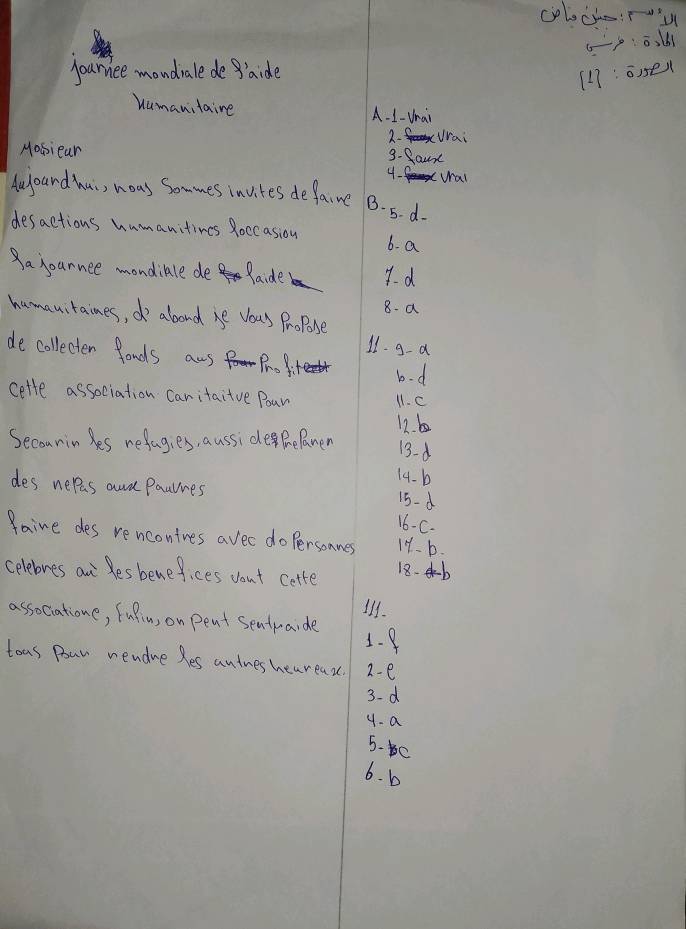 الاسم: حسن فياض
المادة: فرنسي
الصورة: [1]
journée mondiale de l'aide
Humanitaire
Mosieur
Aujourd'hui, nous sommes invites de faire
des actions humanitires loccasion
la journnee mondiale de laide
humanitaires, d'abord je vous propose
de collecter fonds aus profit
cette association caritaitve pour
secourir les refugies, aussi des preparer
des repas aux pauvres
faire des rencontres avec do personnes
celebres où les benefices vont cette
associatione, Enfin, on peut sentraide
tous pour rendre les autres heureux.
A-1-vrai
2-vrai
3-faux
4-vrai
B-5-d-
6-a
7-d
8-a
II-9-a
10-d
11-c
12-b
13-d
14-b
15-d
16-c-
17-b-
18-b
III-
1-f
2-e
3-d
4-a
5-c
6-b